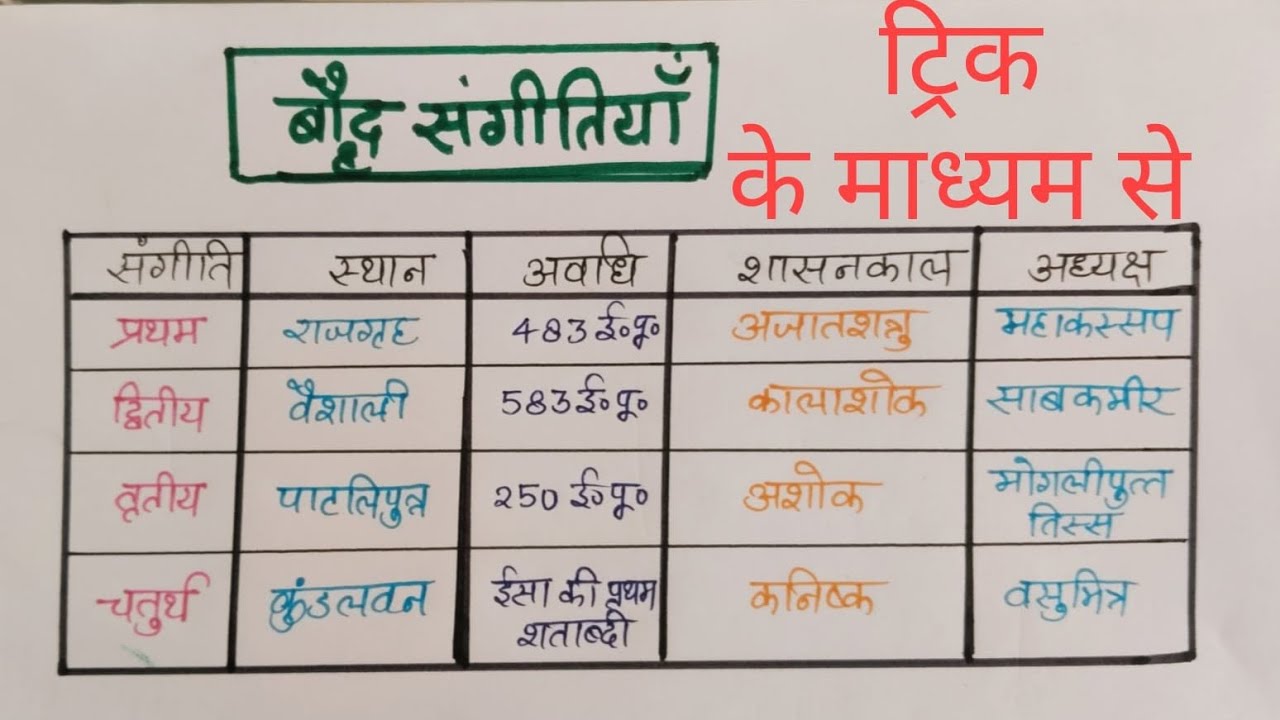 ट्रिक
के माध्यम से
बौद्ध संगीतियाँ
संगीति स्थान अवधि शासनकाल अध्यक्ष
प्रथम राजगृह 483 ई०पू० अजातशत्रु महाकस्सप
द्वितीय वैशाली 583 ई०पू० कालाशोक साबकमीर
तृतीय पाटलिपुत्र 250 ई०पू० अशोक मोगलीपुत्त तिस्स
चतुर्थ कुंडलवन ईसा की प्रथम शताब्दी कनिष्क वसुमित्र